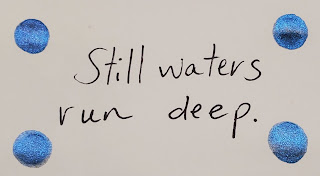 Still waters
run deep.